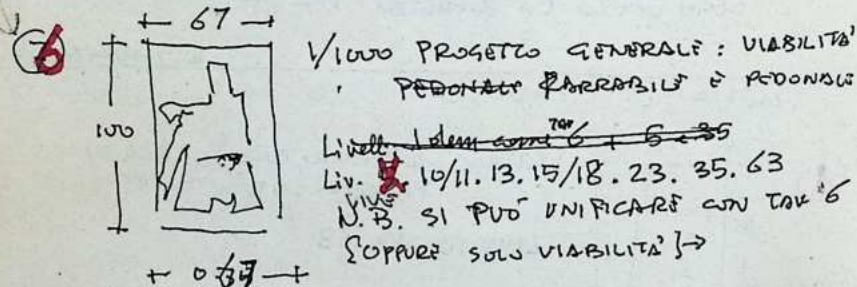 6
67
100
1/1000 PROGETTO GENERALE : VIABILITA'
PEDONALE CARRABILE E PEDONALE
Livelli Idem come TAV 6 + 5 + 35
Liv. 10/11. 13. 15/18. 23. 35. 63
N.B. SI PUÒ UNIFICARE CON TAV 6
{OPPURE SOLO VIABILITA' }→